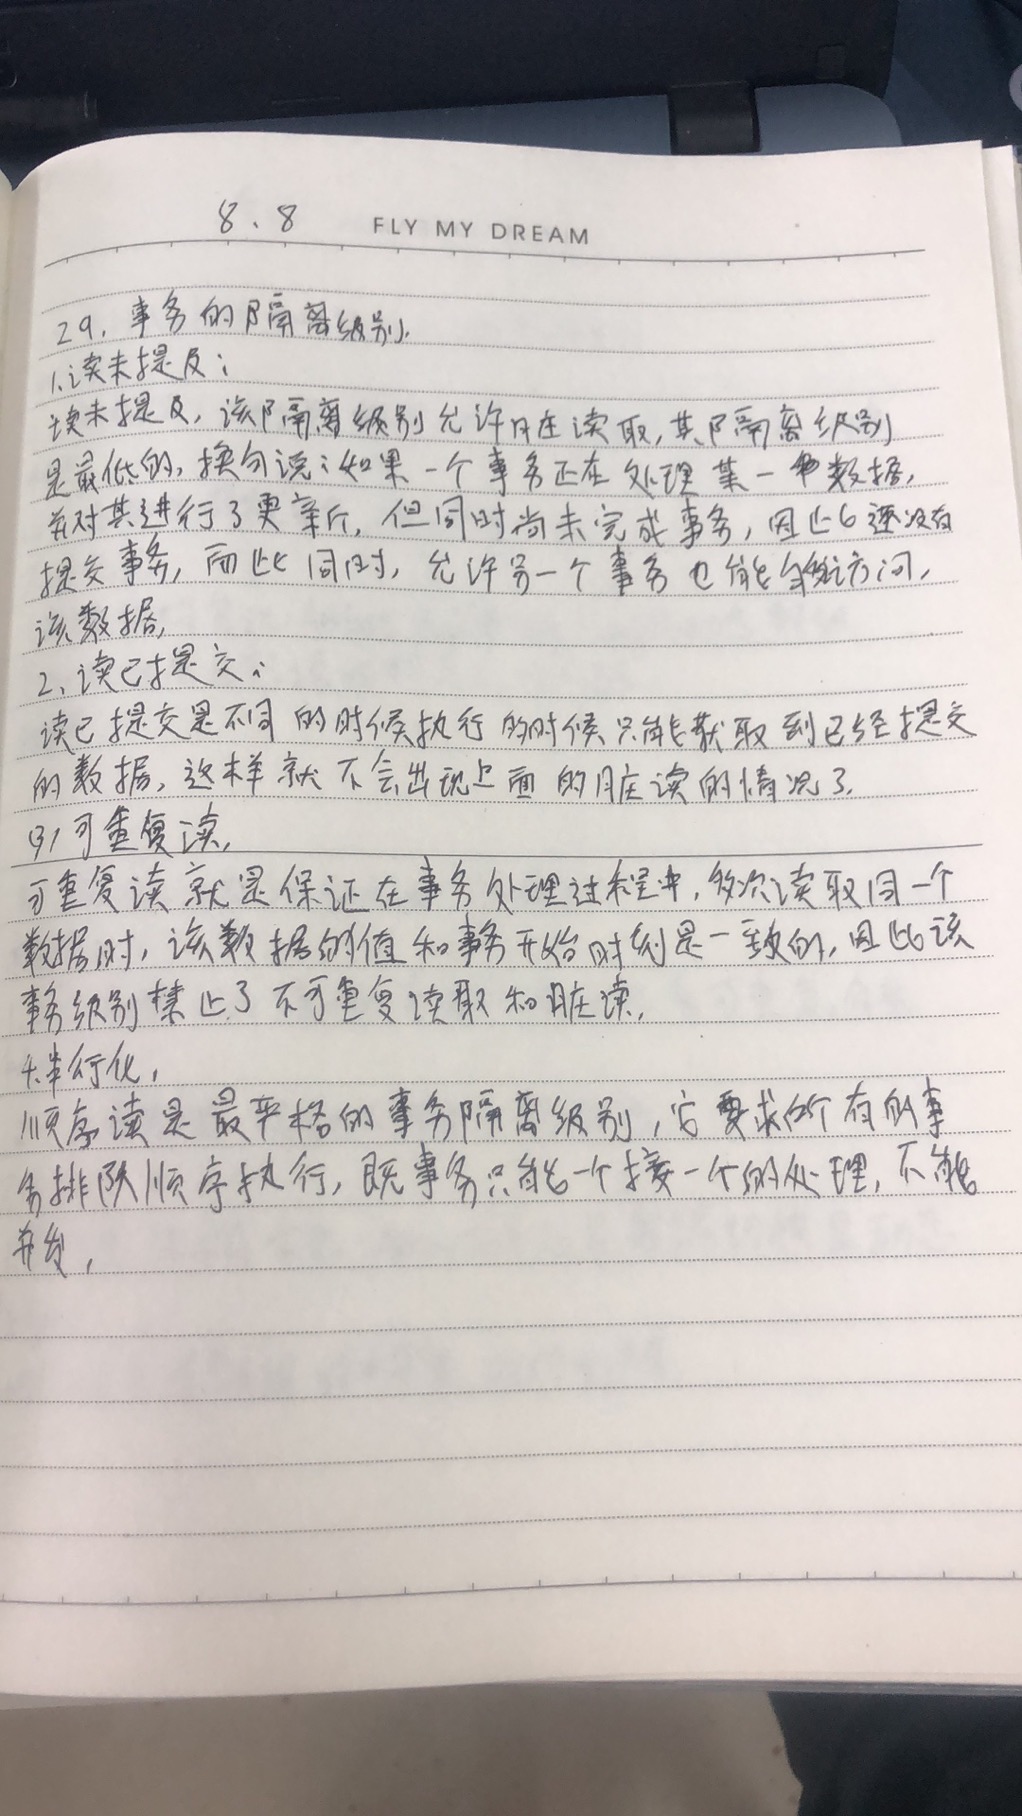 8.8 FLY MY DREAM
29.事务的隔离级别.
1.读未提及:
读未提及,该隔离级别允许脏读取,其隔离级别
是最低的,换句说:如果一个事务正在处理某一数据,
并对其进行了更新,但同时尚未完成事务,因此还没有
提交事务,而此同时,允许另一个事务也能够访问,
该数据,
2、读已提交:
读已提交是不同的时候执行的时候只能获取到已经提交
的数据,这样就不会出现上面的脏读的情况了.
(3)可重复读,
可重复读就是保证在事务处理过程中,多次读取同一个
数据时,该数据的值和事务开始时刻是一致的,因此该
事务级别禁止了不可重复读取和脏读,
4.串行化,
顺序读是最严格的事务隔离级别,它要求所有的事
务排队顺序执行,既事务只能一个接一个的处理,不能
并发,